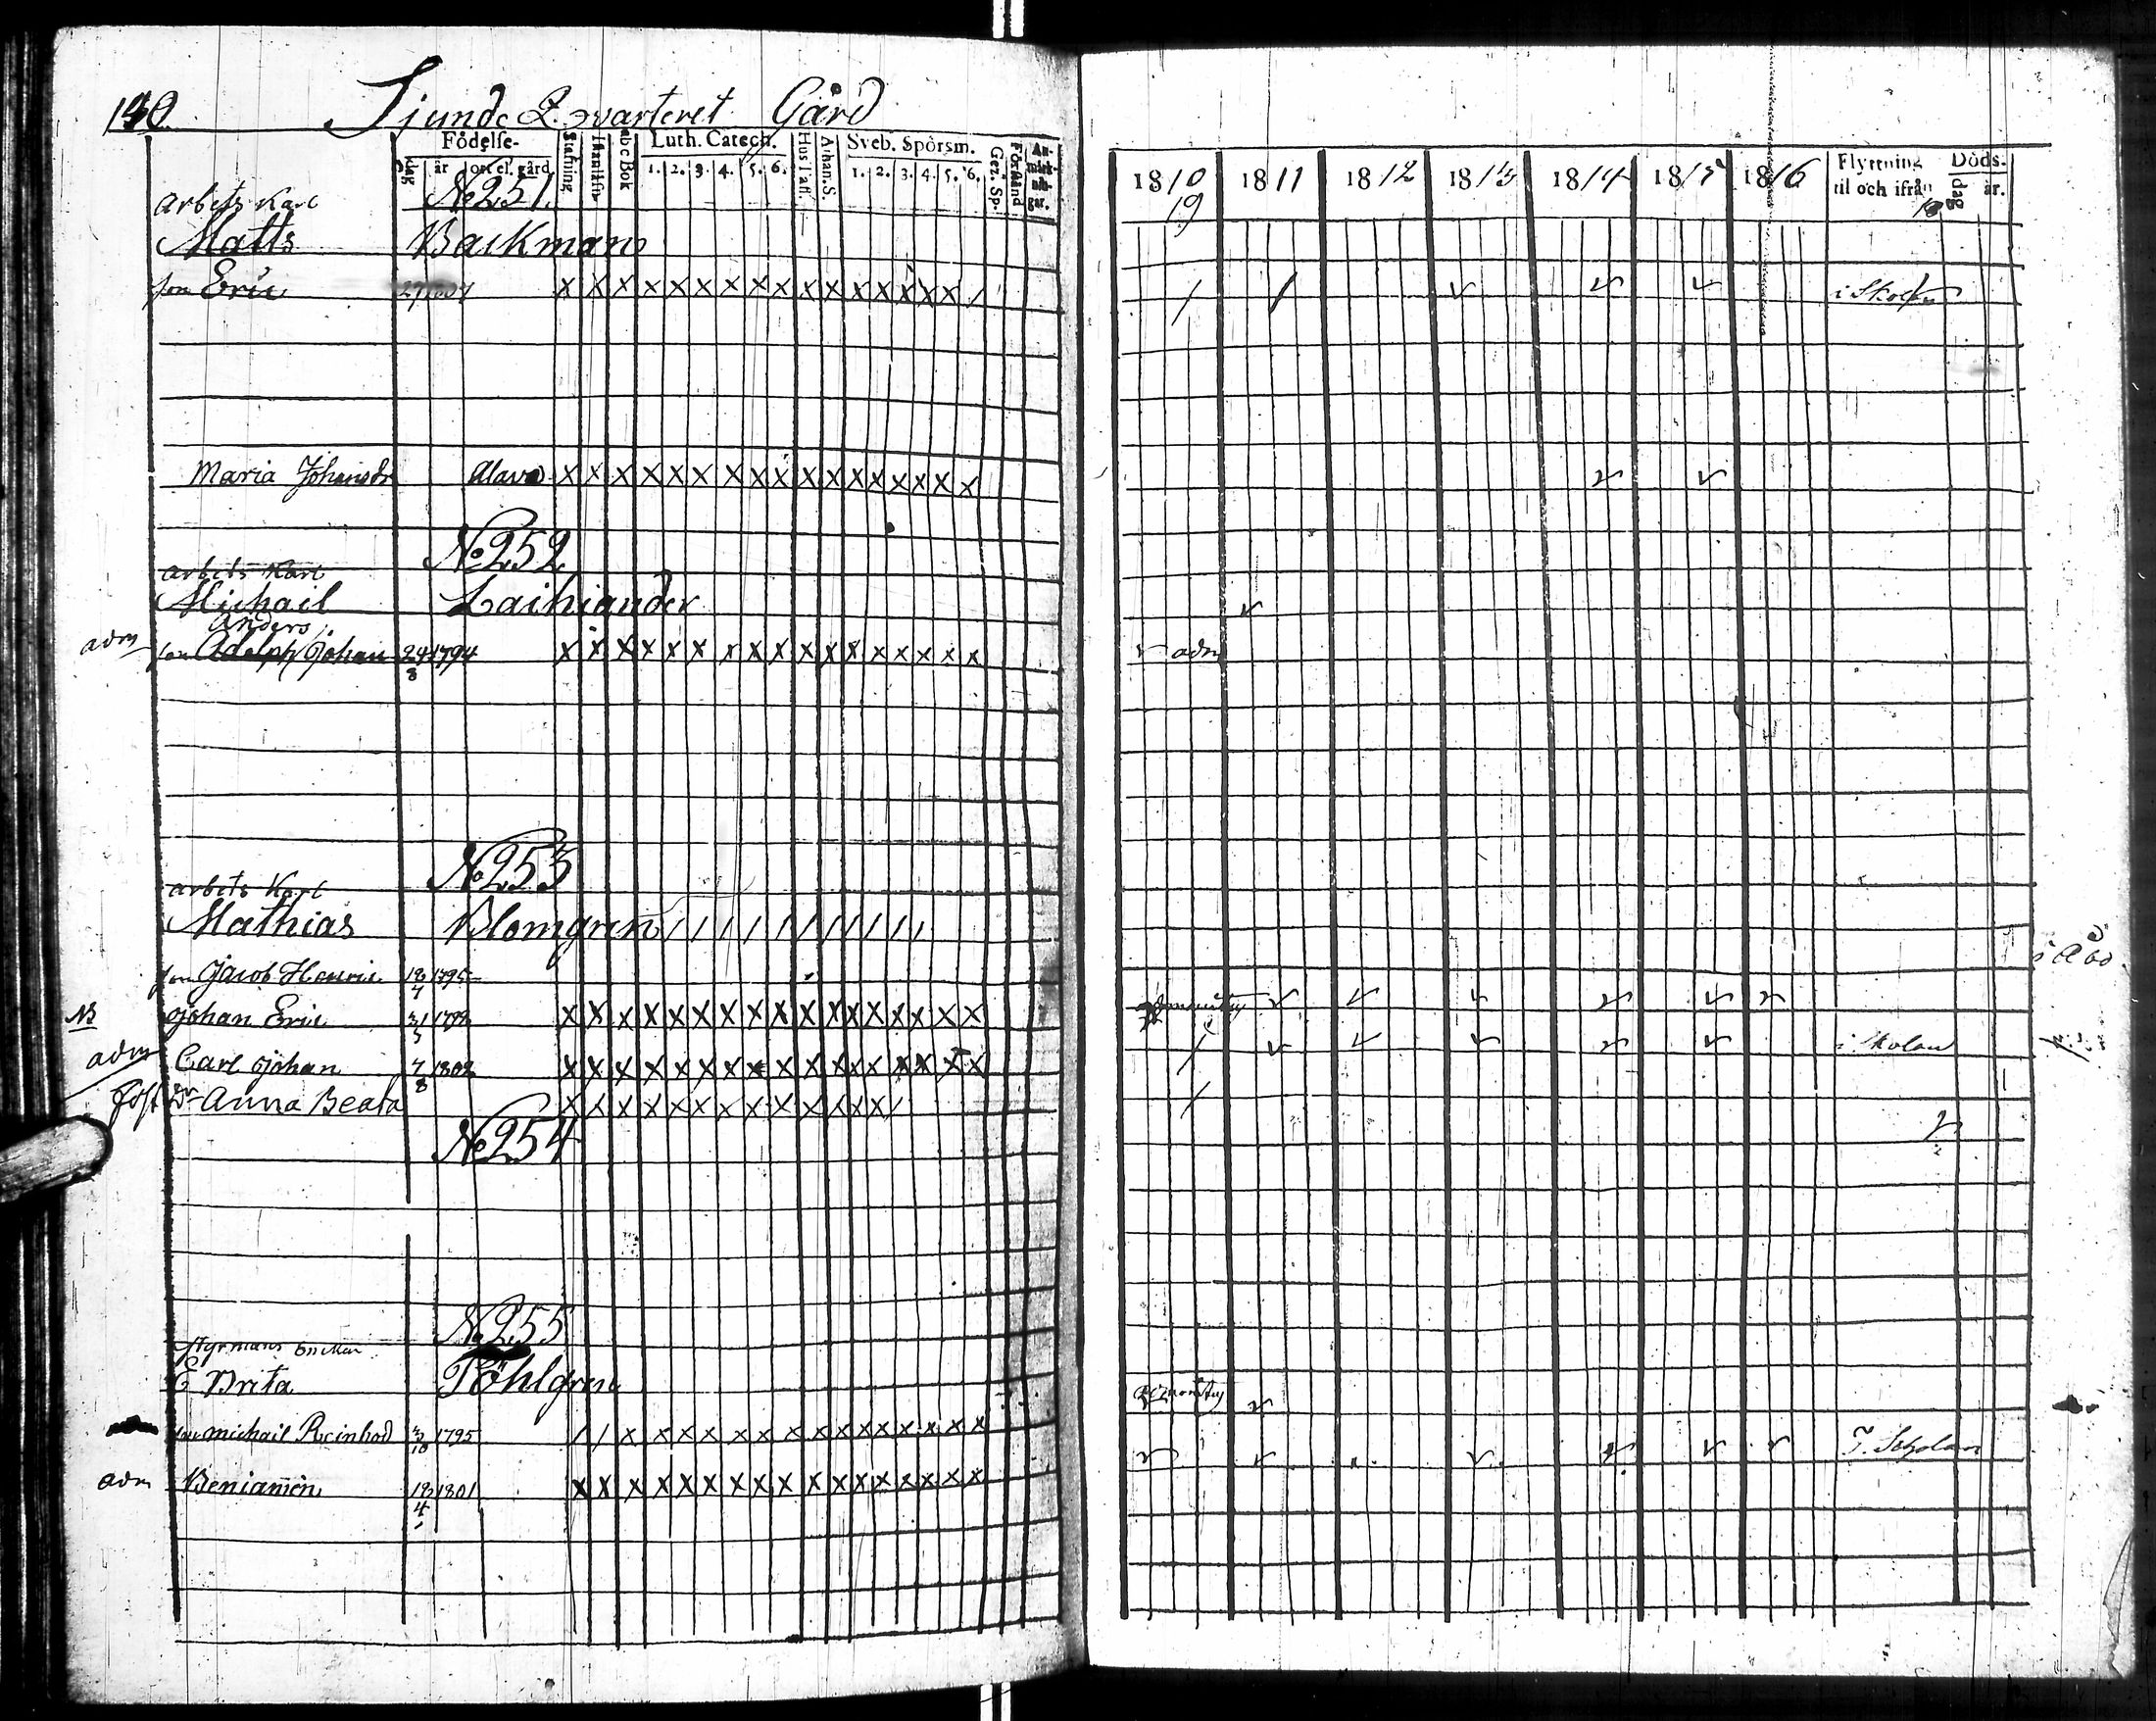 140
Sjunde Qvarteret Gård
Födelse-
dag
år
ort el. gård
Stafning
Abc Bok
Luth. Catech.
1. 2. 3. 4. 5. 6.
Hustafl.
Athan. S.
Sveb. Spörsm.
1. 2. 3. 4. 5. 6.
Gez. Sp.
Förstånd
An-
märk-
nin-
gar.
1810 1811 1812 1813 1814 1815 1816
19
Flyttning
til och ifrån
Döds-
dag
år.
No 251.
arbets Karl
Matts Backman
son Eric x x x x x x x x x x x x x x x x / / / v v v i Skolan
Maria Johansdr Alavo x x x x x x x x x x x x x x x x x v v
No 252
arbets Karl
Michail Laihiander v
Anders
adm son Adolph Johan 24/8 1794 x x x x x x x x x x x x x x x x x v adm
No 253
arbets Karl
Mathias Blomgren / / / / / / / / / / /
son Jacob Henric 1795 i Åbo
NB Johan Eric 1798 x x x x x x x x x x x x x x x x x v v v v v v
adm Carl Johan 7/8 1802 x x x x x x x x x x x x x x x x x / v v v v v i Skolan
Fost Dr Anna Beata x x x x x x x x x x x x x / /
No 254
No 255
Styrmans Enckan
E Brita Pöhlgren
son Michail Reinhod 3/10 1795 / / x x x x x x x x x x x x x x x v
adm Beniamin 1801 x x x x x x x x x x x x x x x x x v v v v v v I. Scholan